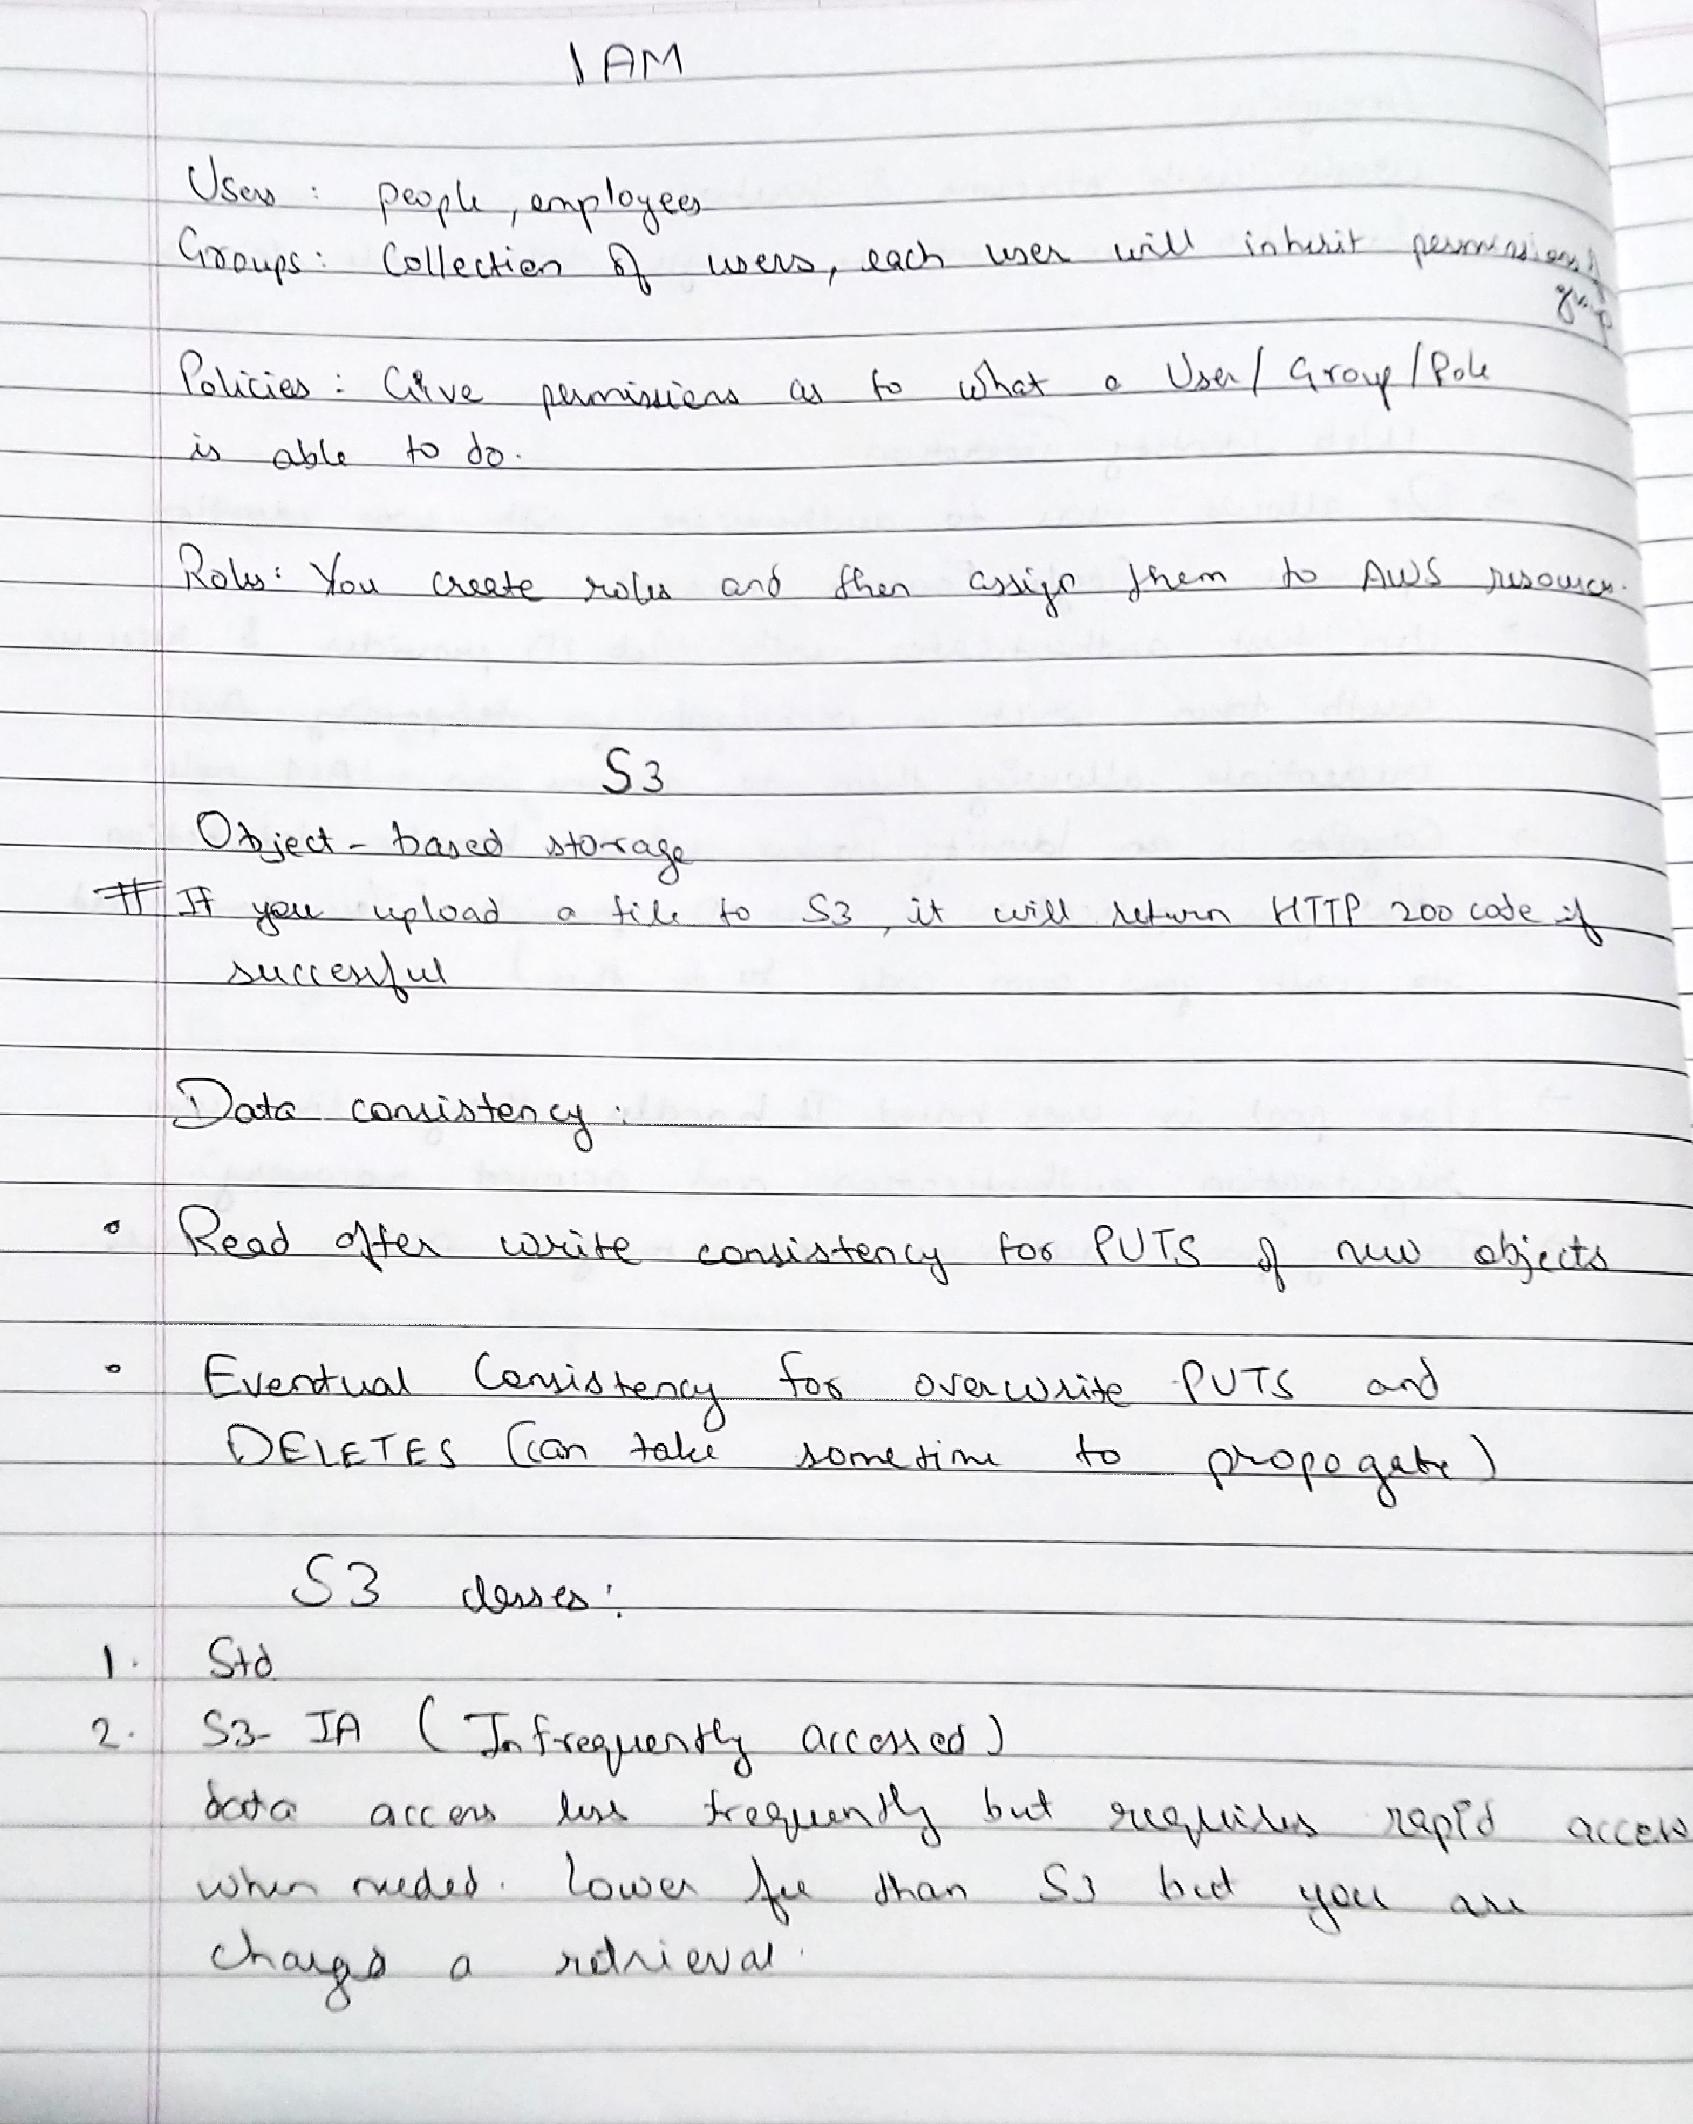 IAM
Users : people, employees
Groups : Collection of users, each user will inherit permissions of
group
Policies : Give permissions as to what a User / Group / Role
is able to do.
Roles : You create roles and then assign them to AWS resources.
S3
Object - based storage
# If you upload a file to S3, it will return HTTP 200 code if
successful
Data consistency :
• Read after write consistency for PUTS of new objects
• Eventual Consistency for overwrite PUTS and
DELETES (can take sometime to propogate)
S3 classes :
1. Std
2. S3- IA (Infrequently accessed)
data access less frequently but requires rapid access
when needed. Lower fee than S3 but you are
charged a retrieval.